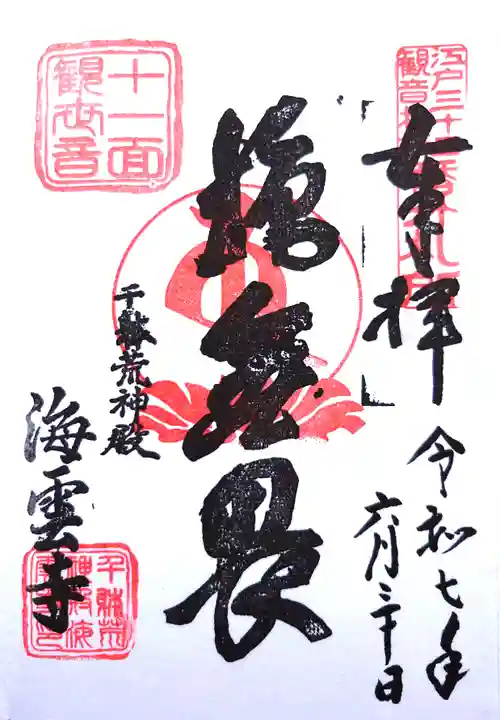 奉拝
令和七年
六月三十日
施無畏
千躰荒神殿
海雲寺
十一面
観世音
江戸三十
観音
千躰荒
神殿海